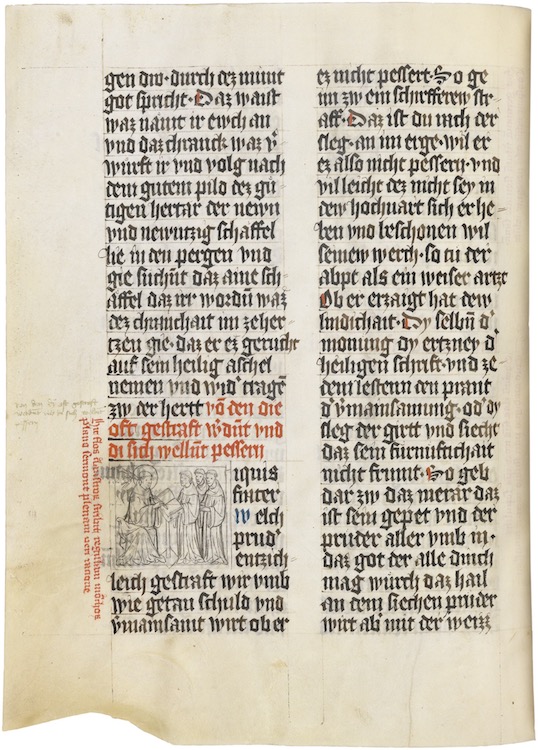 gen diw · durch dez munt
got spricht · Daz waist
waz nauct ir ewch an
und daz chranck waz v̄
wurft ir vnd volg nach
dem gutem pild dez gū
tigen hertar der newn
vnd newntzig schaffel
lie in den pergen vnd
gie suchūt daz aine sch-
äffel daz irr wordū waz
dez chranchait im ze her
tzen gie · daz er ez gerucht
auf sein heilig aschel
nemen vnd wid' tragē
zw der hertt vō den die
oft gestraft w'dūt vnd
di sich wellūt pessern
iquis
frater
Welch
prud'
entzich
leich gestraft wir vmb
wie getan schuld vnd
v̄mainsamt wirt ob er
ez nicht pessert · So ge
im zw ein scherfferew str
aff · Daz ist du nach der
sleg · an im erge · wil er
ez also nicht pessern · vnd
vil leicht dez nicht sey in
dew hochuart sich er he-
ben vnd beschonen wil
seinew werch · so tu der
abpt als ein weiser artzt
Ob er erzaigt hat dew
lindichait · Dy selbū d'
monung dy ertzney d'
heiligen schrift · vnd ze
dem lesten den prant
d' v̄mainsamung · od' dy
sleg der gertt vnd siecht
daz sein furnuftichait
nicht frumt · So geb
dar zw daz merar daz
ist sein gepet vnd der
pruder aller vmb in ·
daz got der alle dinch
mag würch daz hail
an dem siechen pruder
wirt ab mit der weizz